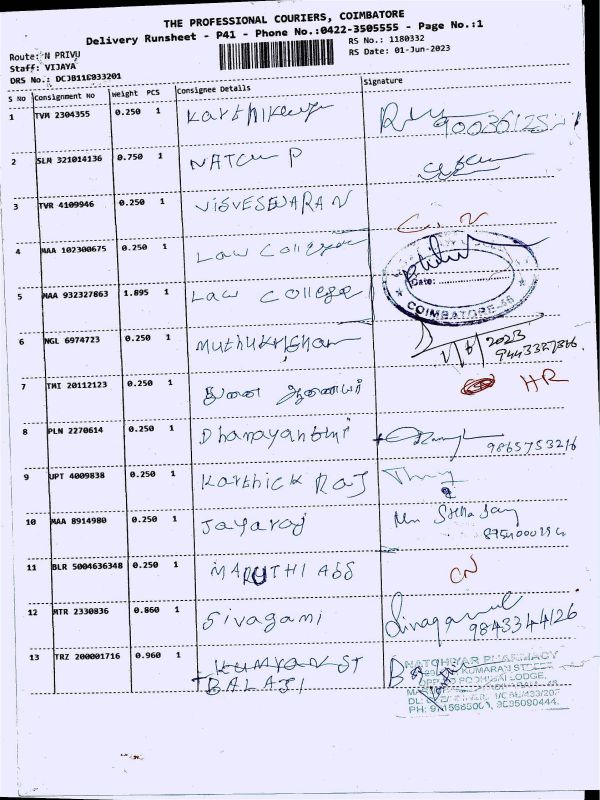 THE PROFESSIONAL COURIERS, COIMBATORE
Delivery Runsheet - P41 - Phone No.:0422-3505555 - Page No.:1
Route: N PRIVU
RS No.: 1180332
Staff: VIJAYA
RS Date: 01-Jun-2023
DRS No.: DCJB11E033201
S No Consignment No Weight PCS Consignee Details Signature
1 TVM 2304355 0.250 1 Karthikeyan
2 SLM 321014136 0.750 1 NATCU P
3 TVR 4109946 0.250 1 VIGVESWARAN C. N
4 MAA 102300675 0.250 1 Law College
Date:
5 MAA 932327863 1.895 1 Law College
COIMBATORE-46
6 NGL 6974723 0.250 1 Muthukrishnan 1/6/2023
7 TMI 20112123 0.250 1 துணை ஆணையர் HR
8 PLN 2270614 0.250 1 Dhanayanthi 9865753216
9 UPT 4009838 0.250 1 Karthick Raj
10 MAA 8914980 0.250 1 Jayaraj
11 BLR 5004636348 0.250 1 MARUTHI ADS CN
12 MTR 2330836 0.860 1 Sivagami 9843344126
13 TRZ 200001716 0.960 1 Kumaran ST
BALAJI
NATCHIYAR PHARMACY
KUMARAN STREET
LODGE,